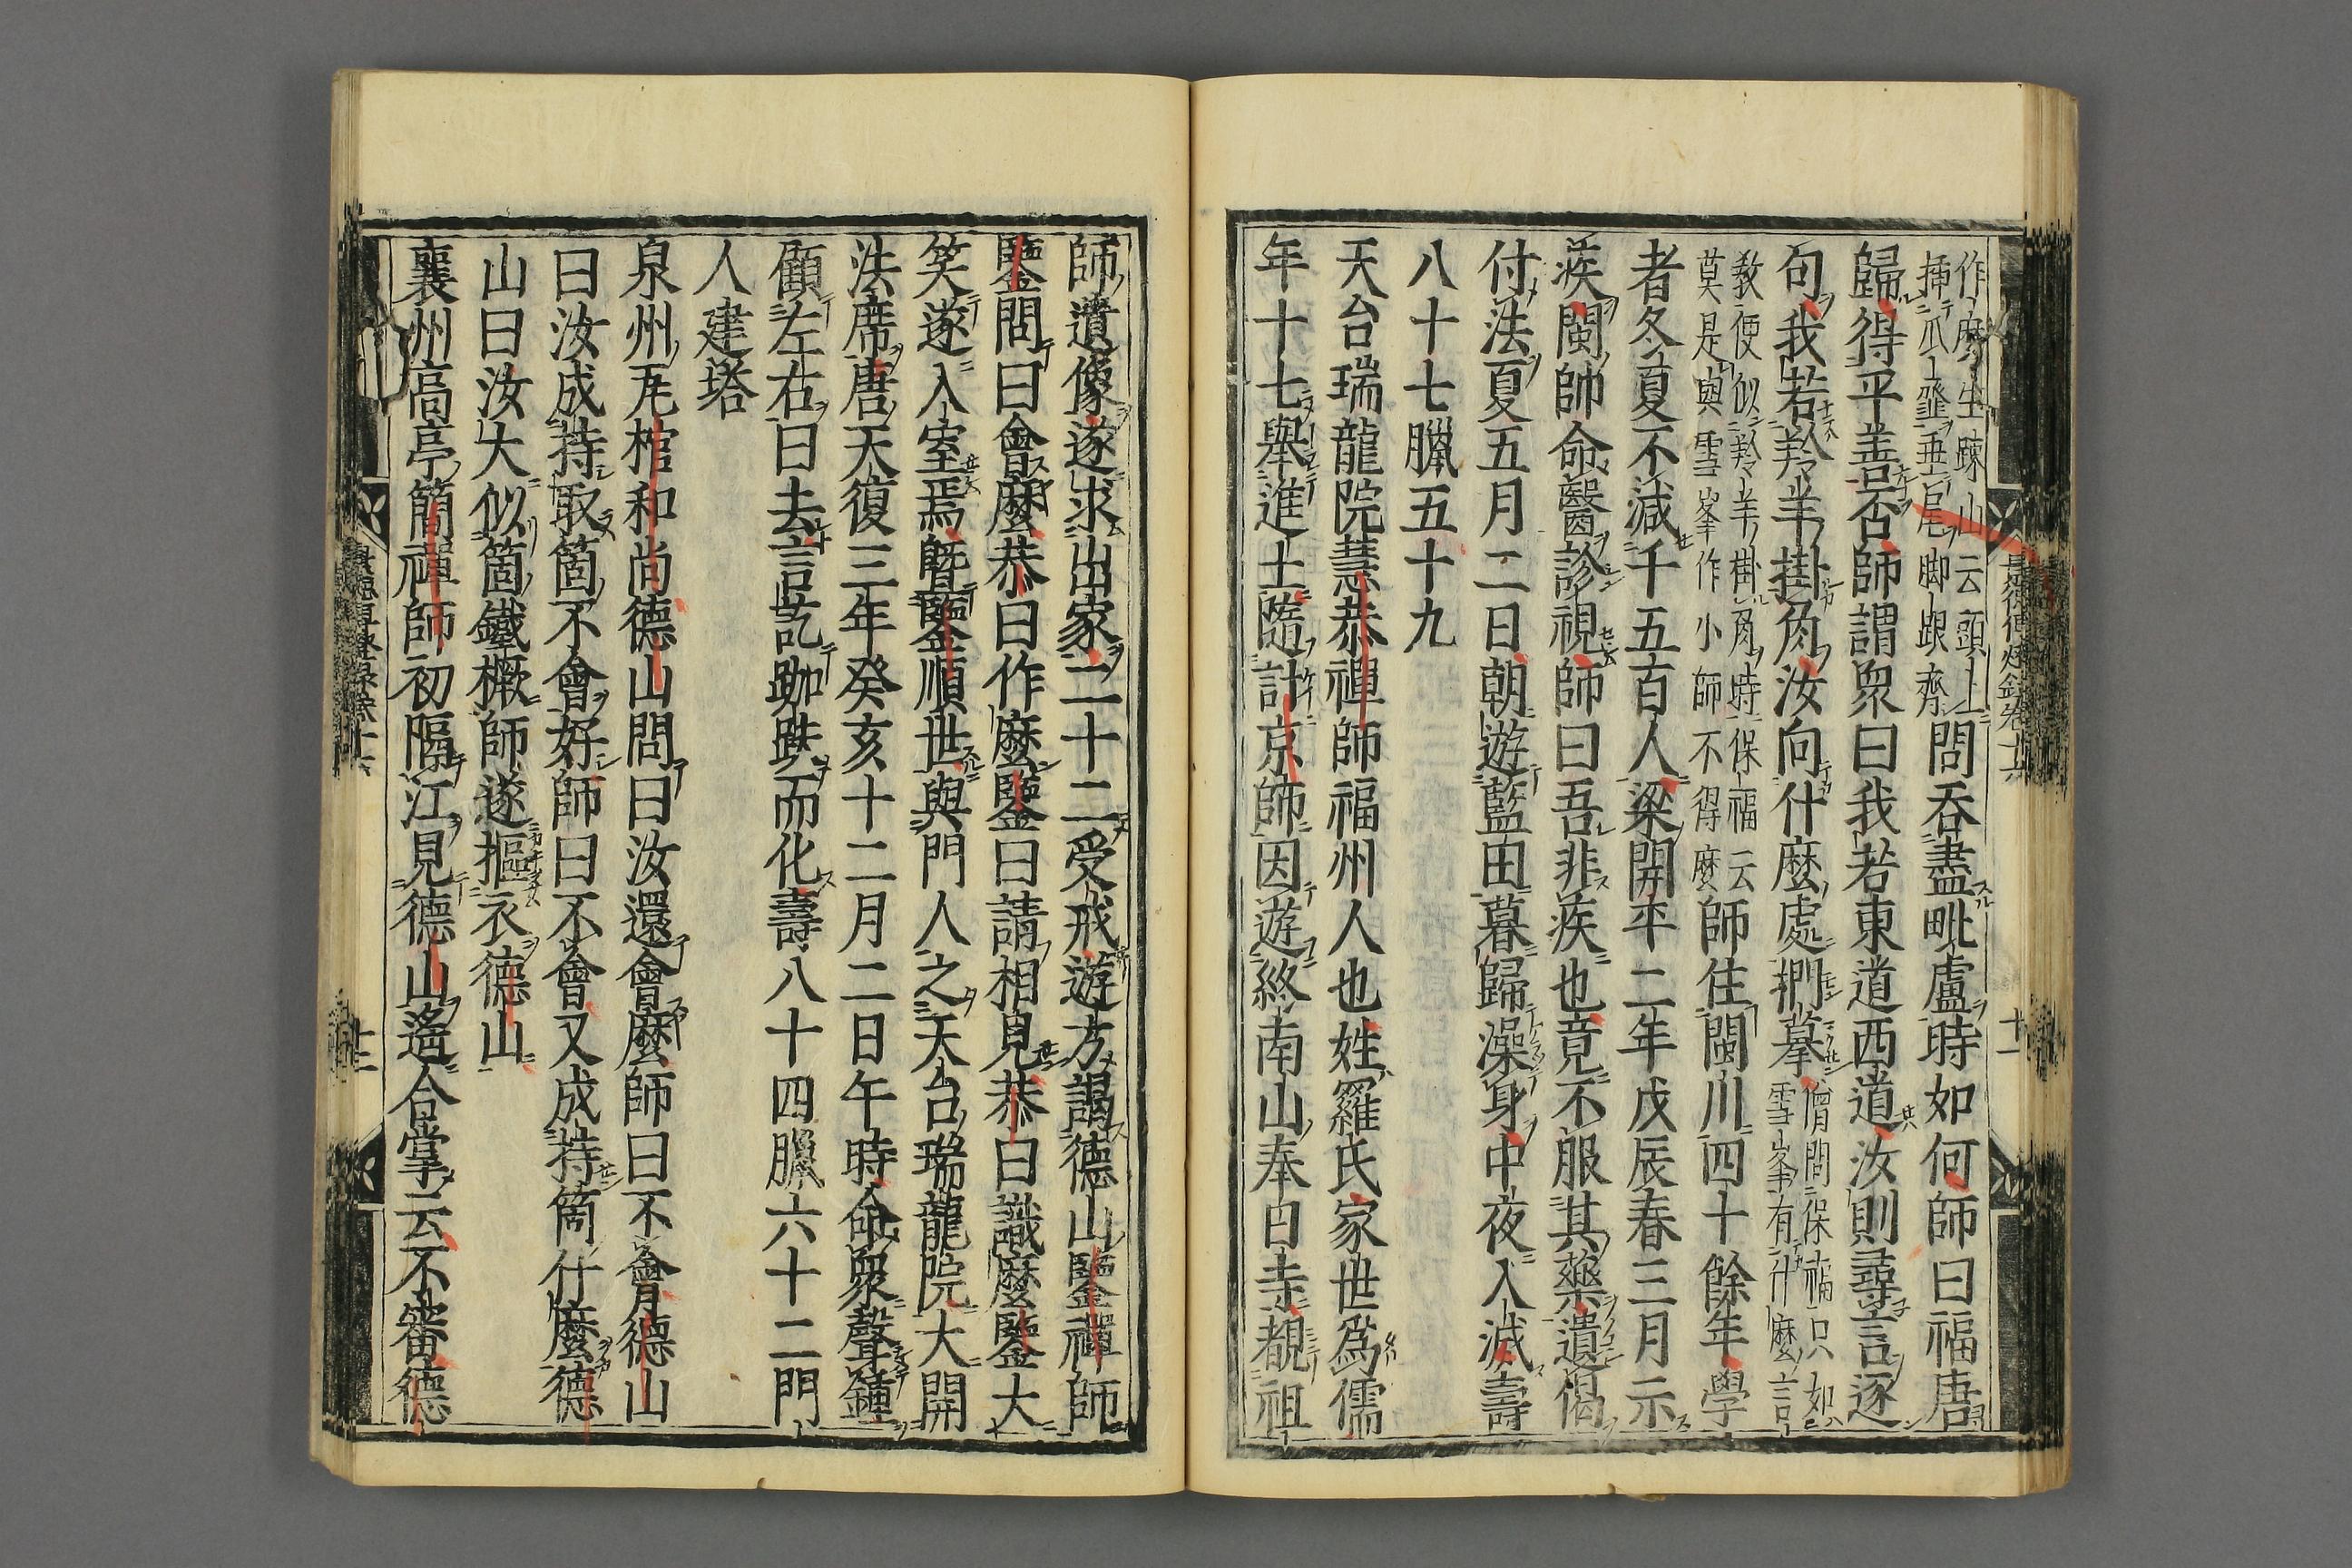 作麽生踈山云頭上
插瓜虀垂尾脚跟齊
問吞盡毗盧時如何師曰福唐
歸得平善否師謂衆曰我若東道西道汝則尋言逐
句我若羚羊掛角汝向什麽處捫摹
僧問保福只如
雪峯有什麽言
教便似羚羊掛角時保福云
莫是與雪峯作小師不得麽
師住閩川四十餘年學
者冬夏不減千五百人梁開平二年戊辰春三月示
疾閩帥命醫診視師曰吾非疾也竟不服其藥遺偈
付法夏五月二日朝遊藍田暮歸澡身中夜入滅壽
八十七臘五十九
天台瑞龍院慧恭禪師福州人也姓羅氏家世爲儒
年十七舉進士隨計京師因遊終南山奉日寺覩祖
師遺像遂求出家二十二受戒遊方謁德山鑒禪師
鑒問曰會麽恭曰作麽鑒曰請相見恭曰識麽鑒大
笑遂入室焉暨鑒順世與門人之天台瑞龍院大開
法席唐天復三年癸亥十二月二日午時命衆聲鐘
顧左右曰去言訖跏趺而化壽八十四臘六十二門
人建塔
泉州瓦棺和尚德山問曰汝還會麽師曰不會德山
曰汝成持取箇不會好師曰不會又成持箇什麽德
山曰汝大似箇鐵橛師遂摳衣德山
襄州高亭簡禪師初隔江見德山遙合掌云不審德